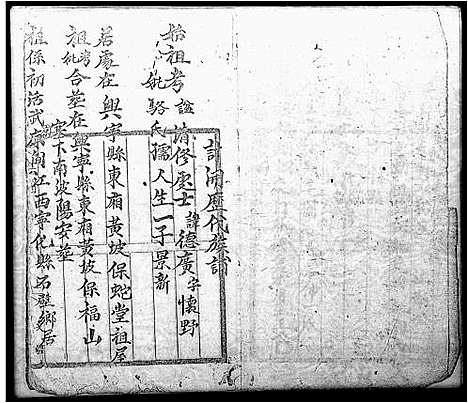 計開歷代族譜
始祖考諡清修處士諱德廣字懷野
妣駱氏孺人生一子景新
居處在興寧縣東廂黃坡保蛇堂祖屋
祖考妣合葬在興寧縣東廂黃坡保福山
寨下南坡陽安葬
祖係初治武 閩江西寧化縣石壁鄉居